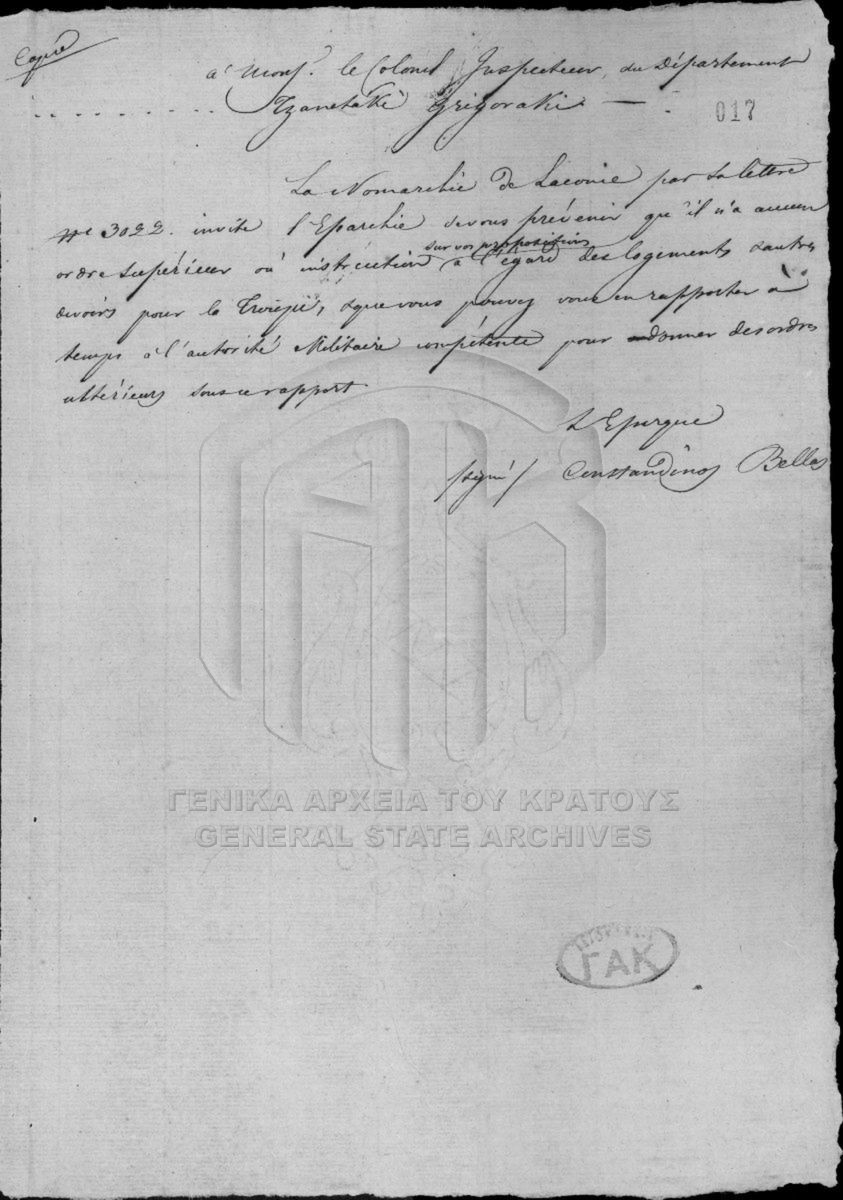 Copie
à Monsr. le Colonel Inspecteur, du Département
Tzanetaki Grigoraki. —
017
La Nomarchie de Laconie par sa lettre
No 3022. invite l'Eparchie de vous prévenir qu'il n'a aucun
sur vos propositions
ordre supérieur où instruction à l'égard des logements & autres
devoirs pour la Troupe, & que vous pouvez vous en rapporter à
temps à l'autorité Militaire compétente pour donner des ordres
ultérieurs sous ce rapport
L'Eparque
/signé/ Constandinos Bellos
ΓΕΝΙΚΑ ΑΡΧΕΙΑ ΤΟΥ ΚΡΑΤΟΥΣ
GENERAL STATE ARCHIVES
ΓΑΚ